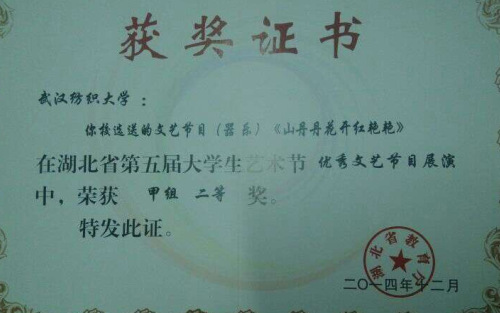 获奖证书
武汉纺织大学：
你校选送的文艺节目（器乐）《山丹丹花开红艳艳》
在湖北省第五届大学生艺术节 优秀文艺节目展演
中，荣获 甲组 二等 奖。
特发此证。
湖北省教育厅
二〇一四年十二月